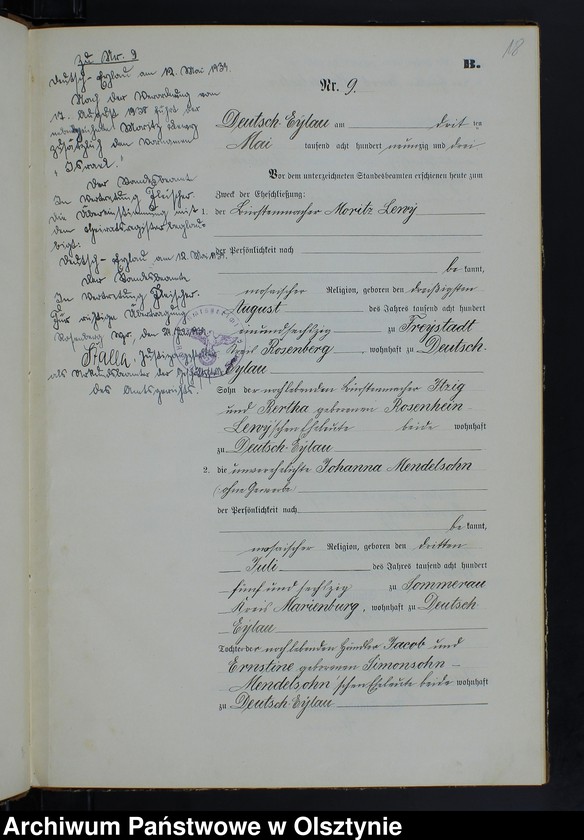 18
B.
Nr. 9.
Deutsch-Eylau am dritten
Mai tausend acht hundert neunzig und drei
Vor dem unterzeichneten Standesbeamten erschienen heute zum
Zweck der Eheschließung:
1. der Bürstenmacher Moritz Lewy
der Persönlichkeit nach
be kannt,
mosaischer Religion, geboren den dreißigsten
August des Jahres tausend acht hundert
einundsechzig zu Freystadt
Rosenberg, wohnhaft zu Deutsch-
Eylau
Sohn der noch lebenden Bürstenmacher Itzig
und Bertha geborenen Rosenhein
Lewy'schen Eheleute beide wohnhaft
zu Deutsch-Eylau
2. die unverehelichte Johanna Mendelsohn
ohne Gewerbe
der Persönlichkeit nach
be kannt,
mosaischer Religion, geboren den dritten
Juli des Jahres tausend acht hundert
fünf und sechszig zu Sommerau
Kreis Marienburg, wohnhaft zu Deutsch-
Eylau
Tochter der noch lebenden Händler Jacob und
Ernstine geborenen Simonsohn
Mendelsohn'schen Eheleute beide wohnhaft
zu Deutsch-Eylau
Zu Nr. 9
Deutsch-Eylau am 12. Mai 1939.
Nach der Verordnung vom
17. August 1938 führt der
Moritz Lewy
zusätzlich den Vornamen
"Israel."
Der Standesbeamte
In Vertretung Fleischer.
Die Übereinstimmung mit
dem Heiratsregister beglau-
bigt:
Deutsch-Eylau am 12. Mai 1939.
Der Standesbeamte
In Vertretung Fleischer.
Für richtige Übertragung.
Rosenberg Wpr., den
Stalla, Justizangestellter
als Urkundsbeamter der Geschäftsstelle
des Amtsgerichts.
Archiwum Państwowe w Olsztynie